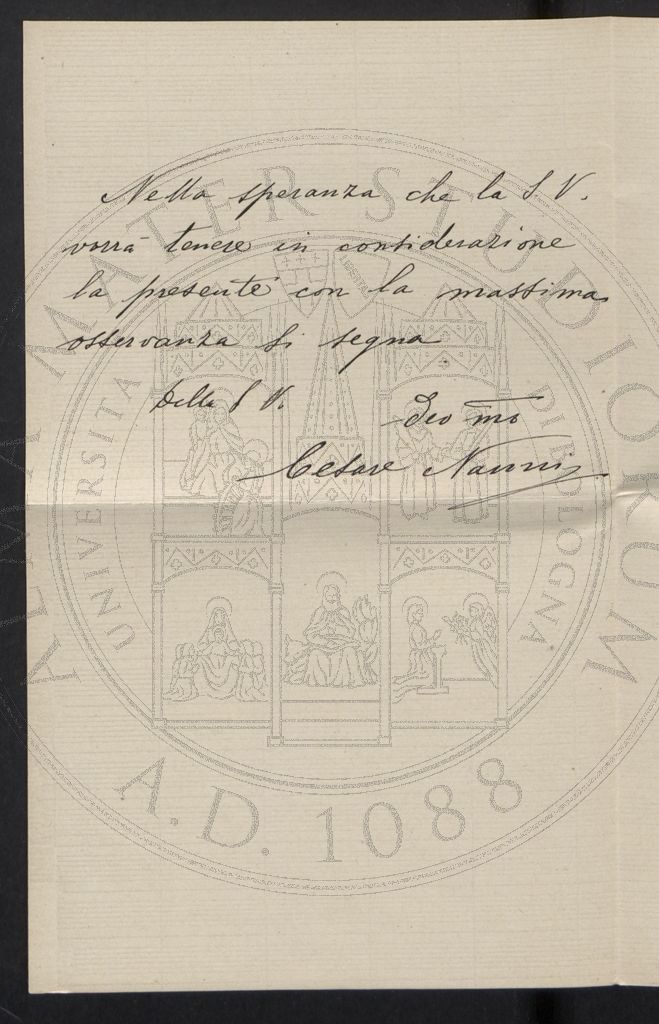 Nella speranza che la S V.
vorrà tenere in considerazione
la presente con la massima
osservanza si segna
Della S V.
Deo mo
Cesare Nanni
ALMA MATER STUDIORUM
UNIVERSITA DI BOLOGNA
A.D. 1088